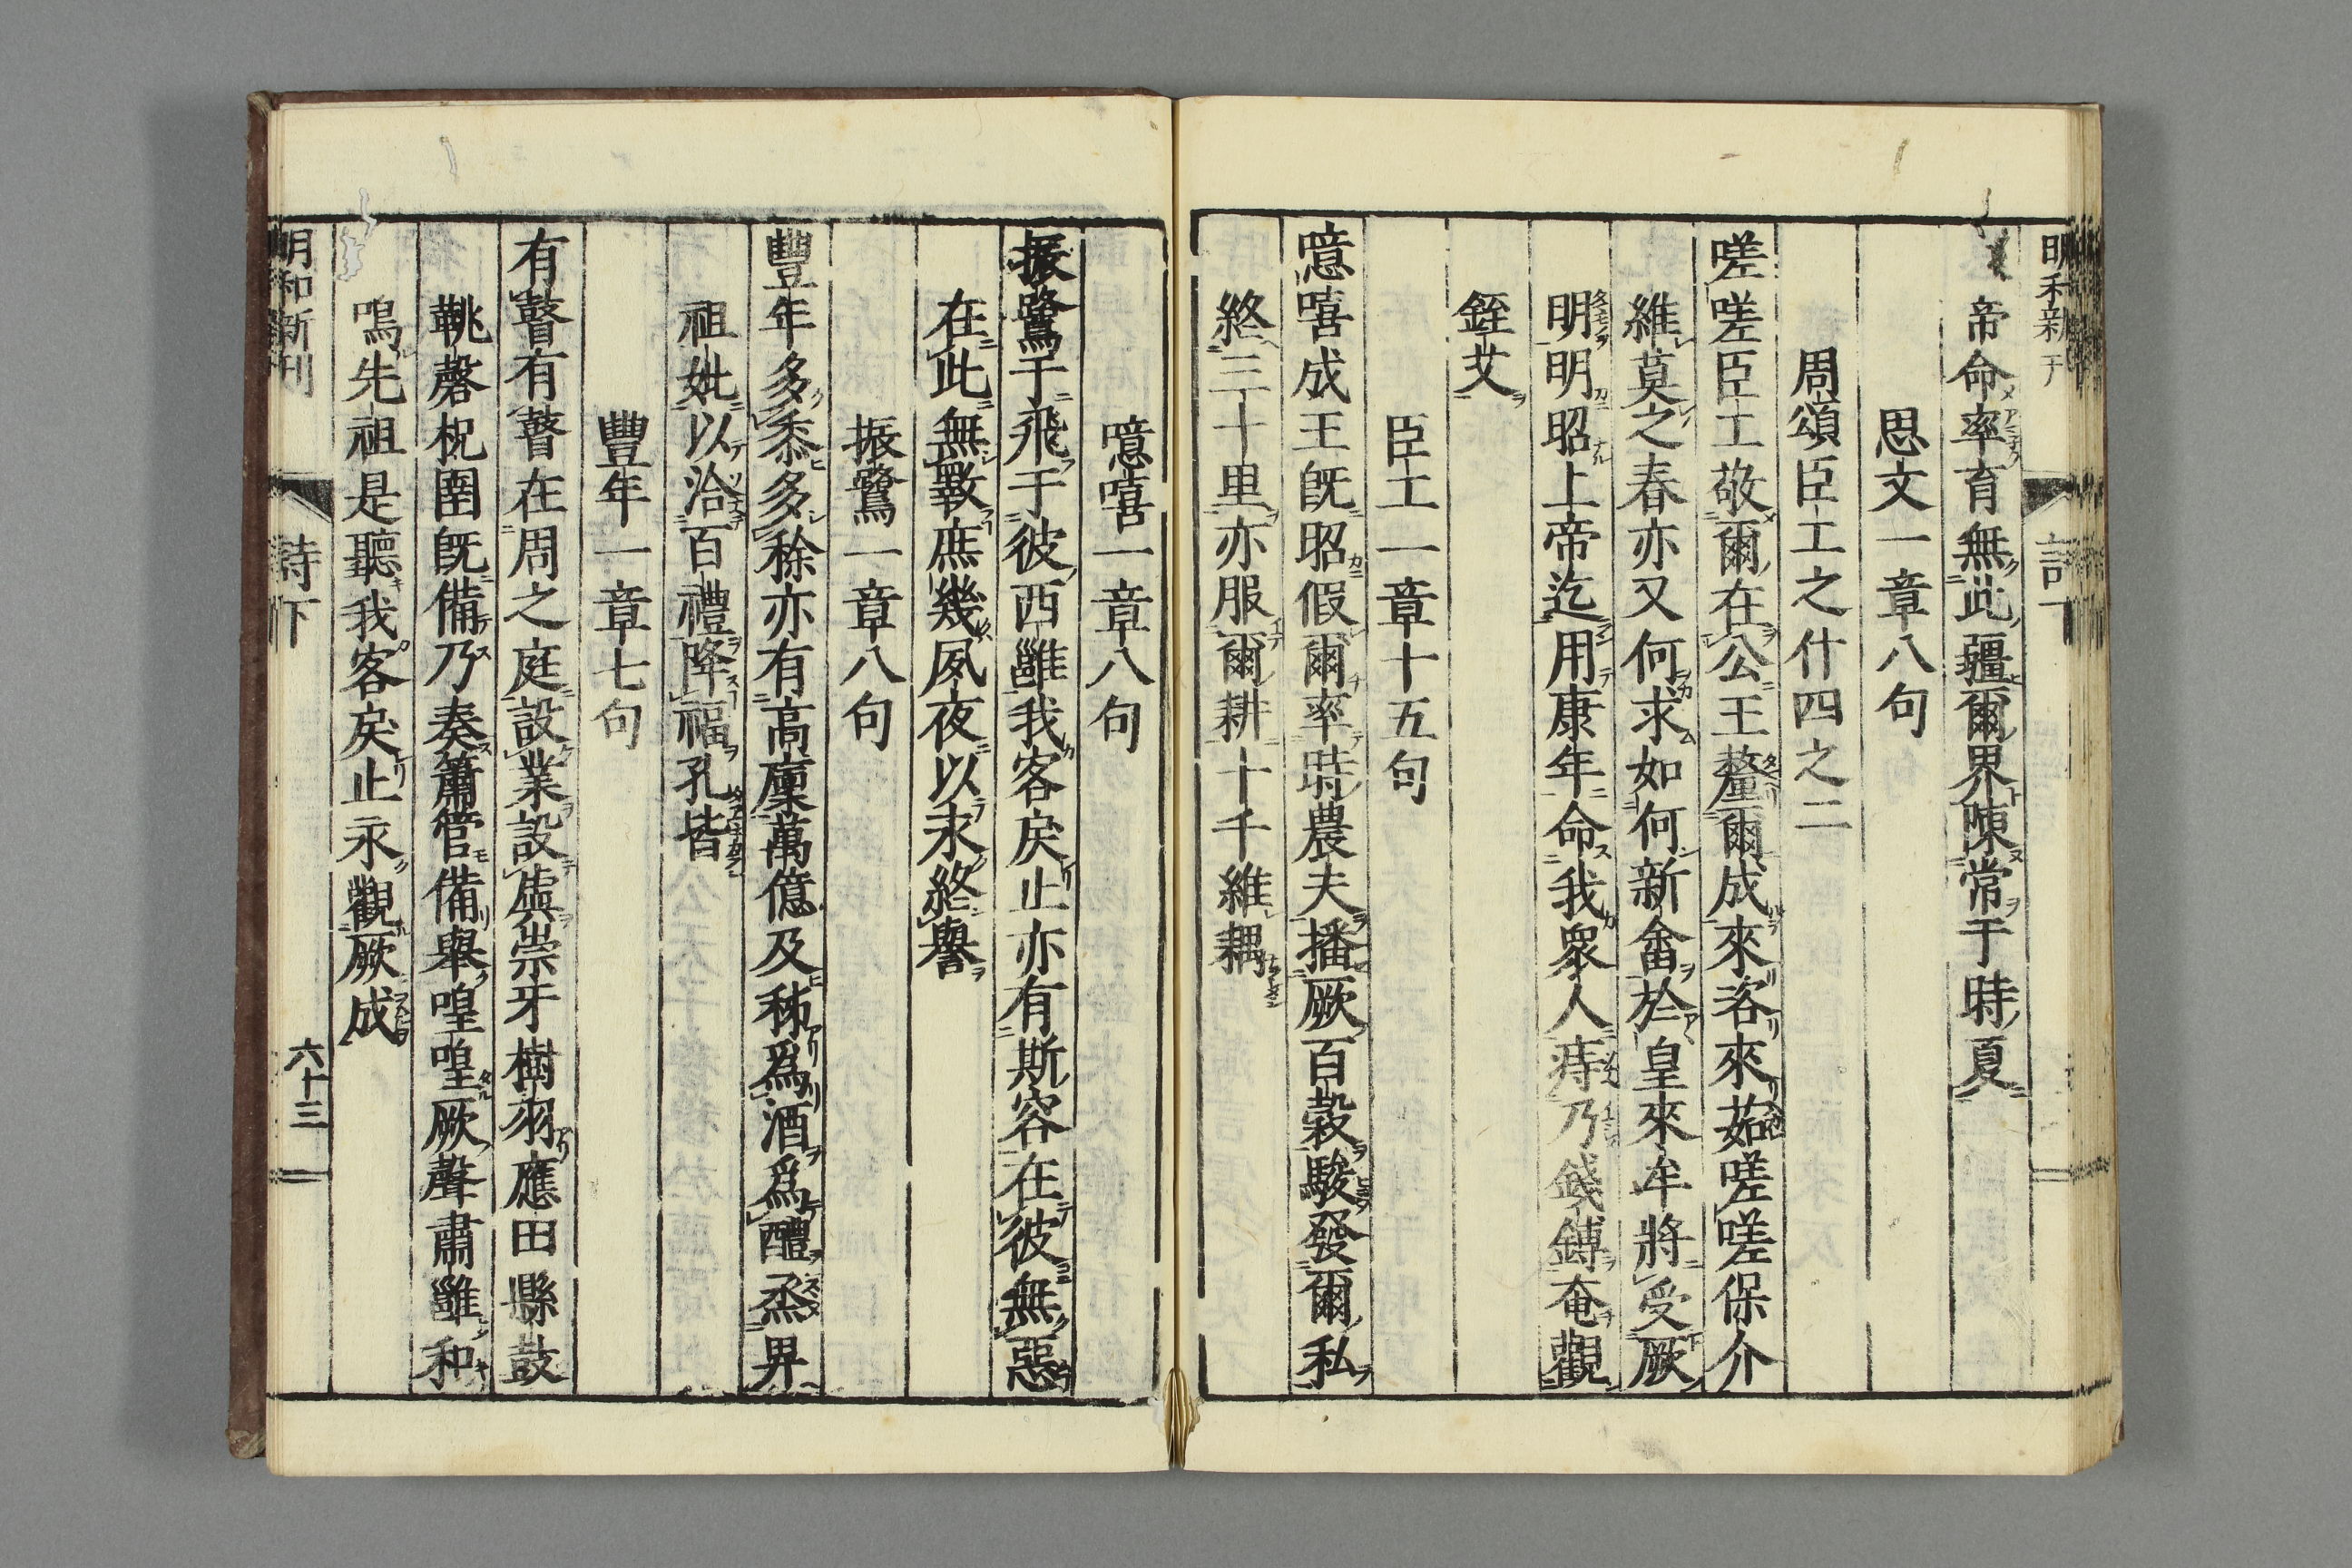 帝命率育無此疆爾界陳常于時夏
思文一章八句
周頌臣工之什四之二
嗟嗟臣工敬爾在公王釐爾成來咨來茹嗟嗟保介
維莫之春亦又何求如何新畬於皇來牟將受厥
明明昭上帝迄用康年命我衆人庤乃錢鎛奄觀
銍艾
臣工一章十五句
噫嘻成王既昭假爾率時農夫播厥百穀駿發爾私
終三十里亦服爾耕十千維耦
噫嘻一章八句
振鷺于飛于彼西雝我客戾止亦有斯容在彼無惡
在此無斁庶幾夙夜以永終譽
振鷺一章八句
豐年多黍多稌亦有高廩萬億及秭爲酒爲醴烝畀
祖妣以洽百禮降福孔皆
豐年一章七句
有瞽有瞽在周之庭設業設虡崇牙樹羽應田縣鼓
鞉磬柷圉既備乃奏簫管備舉喤喤厥聲肅雝和
鳴先祖是聽我客戾止永觀厥成
明和新刊
詩下
六十三